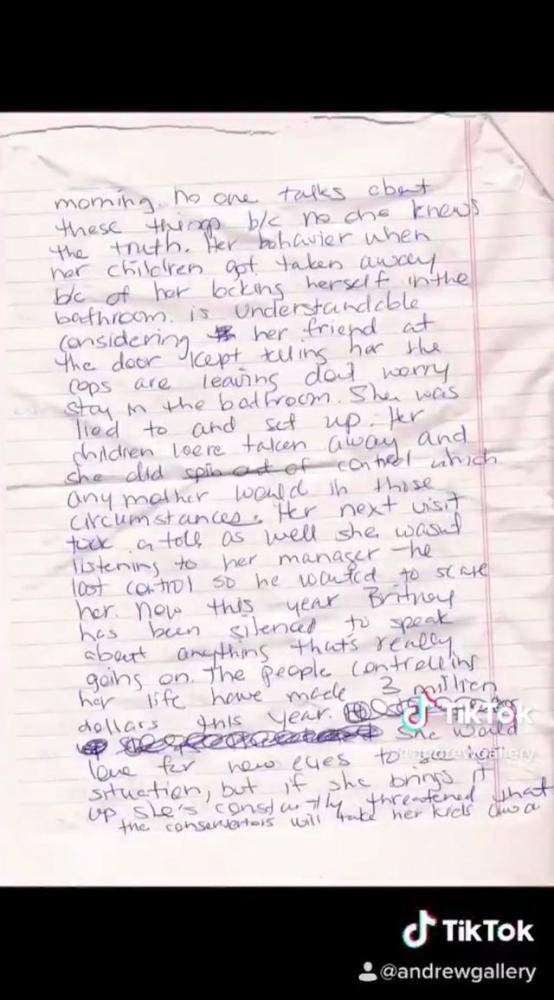 morning. no one talks about
these things b/c no one knows
the truth. Her behavior when
her children got taken away
b/c of her locking herself in the
bathroom. is understandable
considering her friend at
the door kept telling her the
cops are leaving dont worry
stay in the bathroom. She was
lied to and set up. Her
children were taken away and
she did spin out of control which
any mother would in those
circumstances. Her next visit
took a toll as well she wasnt
listening to her manager he
lost control so he wanted to scare
her. Now this year Britney
has been silenced to speak
about anything thats really
going on. The people controlling
her life have made 3 million
dollars this year.
She would
love for new eyes to
situation, but if she brings it
up she's constantly threatened that
the conservators will take her kids awa
TikTok
@andrewgallery
TikTok
@andrewgallery